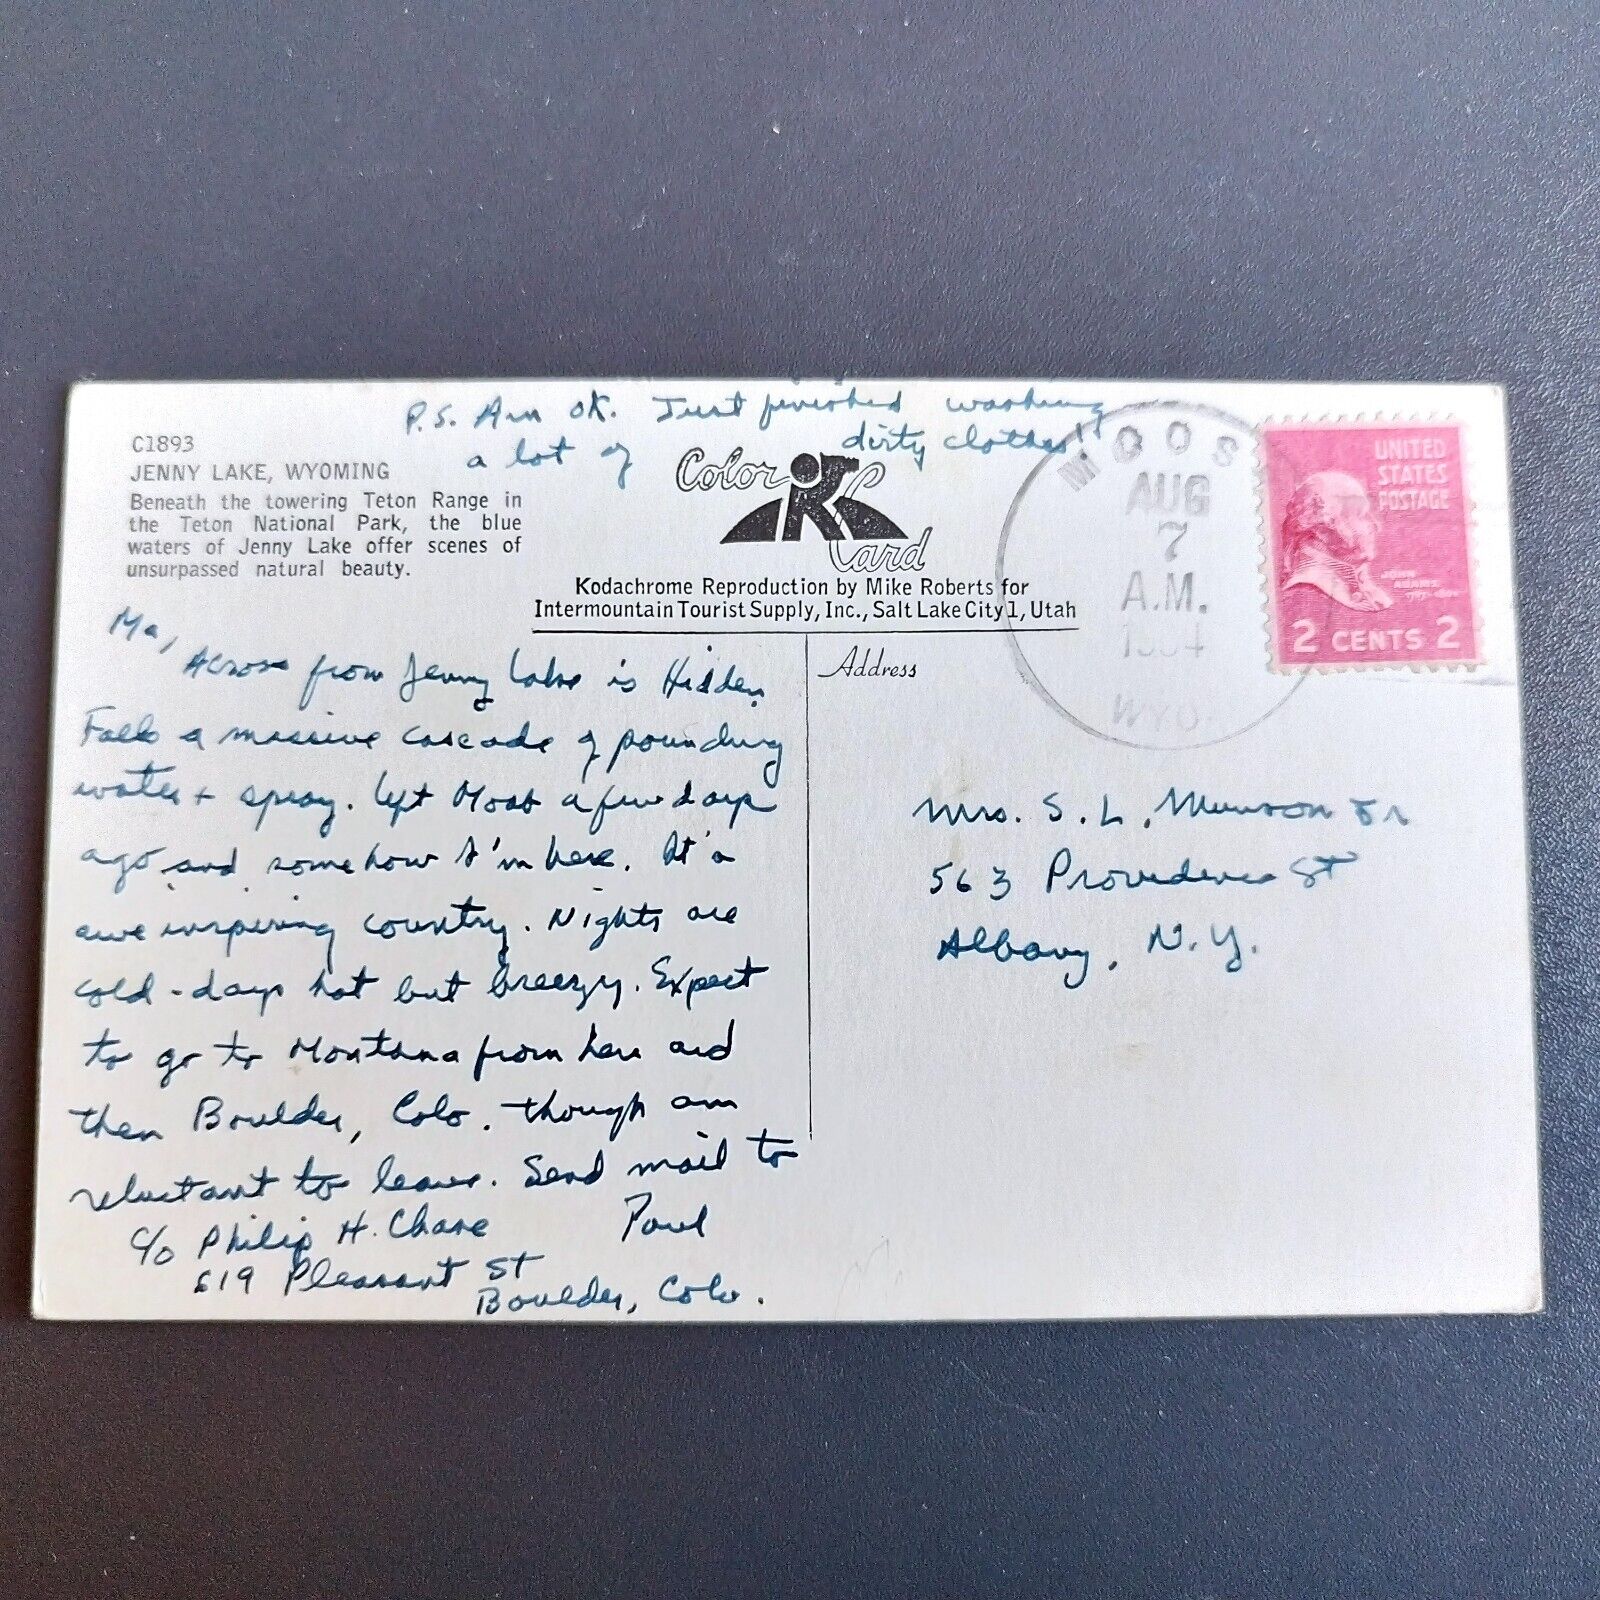 P.S. Am OK. Just finished washing
a lot of dirty clothes!!
C1893
JENNY LAKE, WYOMING
Beneath the towering Teton Range in
the Teton National Park, the blue
waters of Jenny Lake offer scenes of
unsurpassed natural beauty.
Color Card
Kodachrome Reproduction by Mike Roberts for
Intermountain Tourist Supply, Inc., Salt Lake City 1, Utah
MOOS
AUG
7
A.M.
1954
WYO.
UNITED
STATES
POSTAGE
JOHN
ADAMS
2 CENTS 2
Ma,
Across from Jenny Lake is Hidden
Falls a massive cascade of pounding
water + spray. Left Moab a few days
ago and somehow I'm here. It's
awe inspiring country. Nights are
cold - days hot but breezy. Expect
to go to Montana from here and
then Boulder, Colo. though am
reluctant to leave. Send mail to
c/o Philip H. Chase Paul
619 Pleasant St
Boulder, Colo.
Address
Mrs. S. L. Munson Jr
563 Providence St
Albany, N.Y.